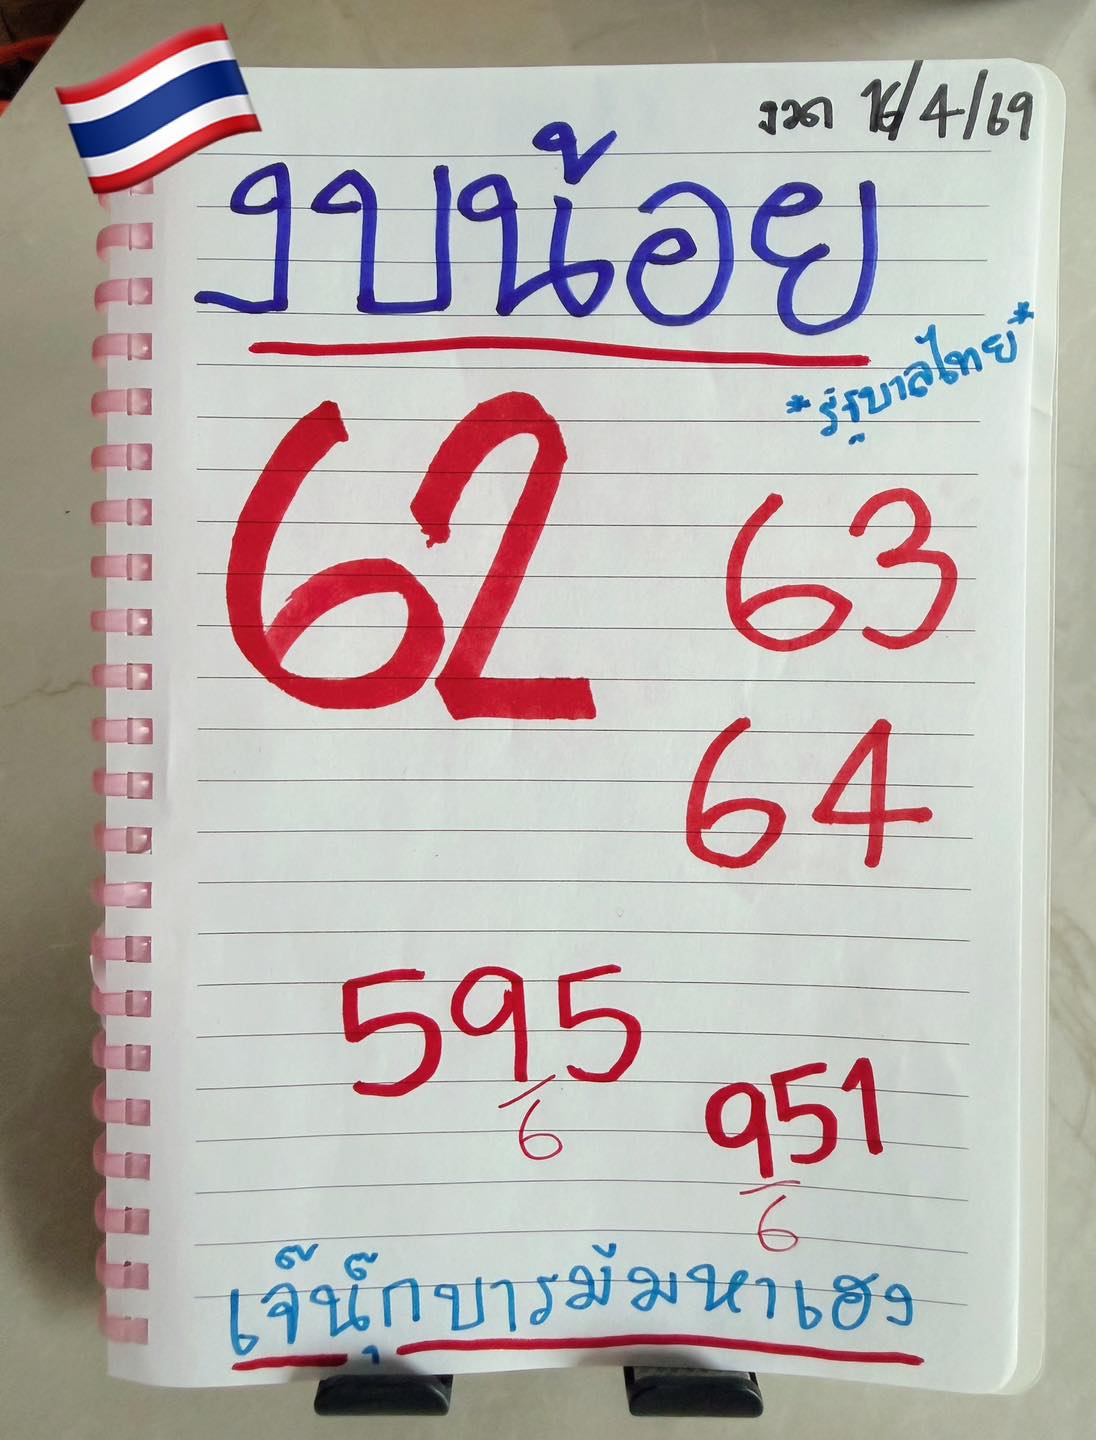 งวด 16/4/69
งบน้อย
*รัฐบาลไทย*
62
63
64
595
6
951
6
เจ๊นุ๊กบารมีมหาเฮง